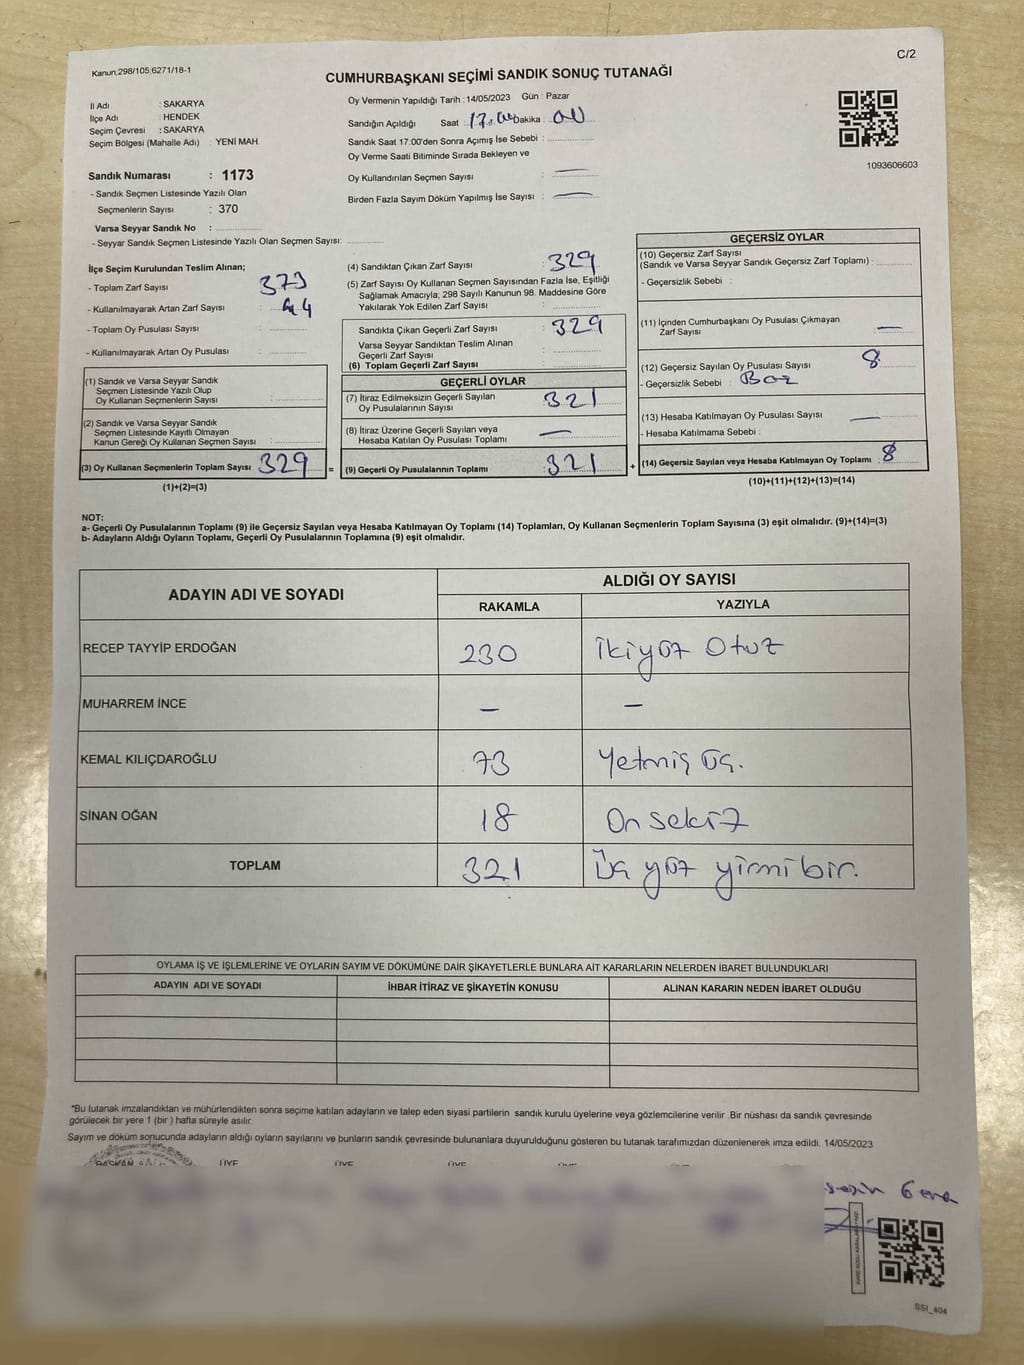 C/2
Kanun;298/105;6271/18-1
CUMHURBAŞKANI SEÇİMİ SANDIK SONUÇ TUTANAĞI
İl Adı : SAKARYA
İlçe Adı : HENDEK
Seçim Çevresi : SAKARYA
Seçim Bölgesi (Mahalle Adı) : YENİ MAH.
Sandık Numarası : 1173
- Sandık Seçmen Listesinde Yazılı Olan
Seçmenlerin Sayısı : 370
Varsa Seyyar Sandık No :
- Seyyar Sandık Seçmen Listesinde Yazılı Olan Seçmen Sayısı:
Oy Vermenin Yapıldığı Tarih : 14/05/2023 Gün : Pazar
Sandığın Açıldığı Saat : 17.00 Dakika : 00
Sandık Saat 17:00'den Sonra Açımış İse Sebebi :
Oy Verme Saati Bitiminde Sırada Bekleyen ve
Oy Kullandırılan Seçmen Sayısı : —
Birden Fazla Sayım Döküm Yapılmış İse Sayısı : —
1093606603
İlçe Seçim Kurulundan Teslim Alınan;
- Toplam Zarf Sayısı : 373
- Kullanılmayarak Artan Zarf Sayısı : 44
- Toplam Oy Pusulası Sayısı :
- Kullanılmayarak Artan Oy Pusulası :
(1) Sandık ve Varsa Seyyar Sandık
Seçmen Listesinde Yazılı Olup
Oy Kullanan Seçmenlerin Sayısı :
(2) Sandık ve Varsa Seyyar Sandık
Seçmen Listesinde Kayıtlı Olmayan
Kanun Gereği Oy Kullanan Seçmen Sayısı :
(3) Oy Kullanan Seçmenlerin Toplam Sayısı : 329
(1)+(2)=(3)
(4) Sandıktan Çıkan Zarf Sayısı : 329
(5) Zarf Sayısı Oy Kullanan Seçmen Sayısından Fazla İse, Eşitliği
Sağlamak Amacıyla; 298 Sayılı Kanunun 98. Maddesine Göre
Yakılarak Yok Edilen Zarf Sayısı :
Sandıkta Çıkan Geçerli Zarf Sayısı : 329
Varsa Seyyar Sandıktan Teslim Alınan
Geçerli Zarf Sayısı :
(6) Toplam Geçerli Zarf Sayısı :
GEÇERLİ OYLAR
(7) İtiraz Edilmeksizin Geçerli Sayılan
Oy Pusulalarının Sayısı : 321
(8) İtiraz Üzerine Geçerli Sayılan veya
Hesaba Katılan Oy Pusulası Toplamı : —
= (9) Geçerli Oy Pusulalarının Toplamı : 321
GEÇERSİZ OYLAR
(10) Geçersiz Zarf Sayısı
(Sandık ve Varsa Seyyar Sandık Geçersiz Zarf Toplamı) :
- Geçersizlik Sebebi :
(11) İçinden Cumhurbaşkanı Oy Pusulası Çıkmayan
Zarf Sayısı : —
(12) Geçersiz Sayılan Oy Pusulası Sayısı : 8
- Geçersizlik Sebebi : Boz
(13) Hesaba Katılmayan Oy Pusulası Sayısı : —
- Hesaba Katılmama Sebebi :
+ (14) Geçersiz Sayılan veya Hesaba Katılmayan Oy Toplamı : 8
(10)+(11)+(12)+(13)=(14)
NOT:
a- Geçerli Oy Pusulalarının Toplamı (9) ile Geçersiz Sayılan veya Hesaba Katılmayan Oy Toplamı (14) Toplamları, Oy Kullanan Seçmenlerin Toplam Sayısına (3) eşit olmalıdır. (9)+(14)=(3)
b- Adayların Aldığı Oyların Toplamı, Geçerli Oy Pusulalarının Toplamına (9) eşit olmalıdır.
ADAYIN ADI VE SOYADI ALDIĞI OY SAYISI
RAKAMLA YAZIYLA
RECEP TAYYİP ERDOĞAN 230 İkiyüz Otuz
MUHARREM İNCE — —
KEMAL KILIÇDAROĞLU 73 Yetmiş üç.
SİNAN OĞAN 18 On sekiz
TOPLAM 321 Üç yüz yirmi bir.
OYLAMA İŞ VE İŞLEMLERİNE VE OYLARIN SAYIM VE DÖKÜMÜNE DAİR ŞİKAYETLERLE BUNLARA AİT KARARLARIN NELERDEN İBARET BULUNDUKLARI
ADAYIN ADI VE SOYADI İHBAR İTİRAZ VE ŞİKAYETİN KONUSU ALINAN KARARIN NEDEN İBARET OLDUĞU
*Bu tutanak imzalandıktan ve mühürlendikten sonra seçime katılan adayların ve talep eden siyasi partilerin sandık kurulu üyelerine veya gözlemcilerine verilir .Bir nüshası da sandık çevresinde
görülecek bir yere 1 (bir ) hafta süreyle asılır.
Sayım ve döküm sonucunda adayların aldığı oyların sayılarını ve bunların sandık çevresinde bulunanlara duyurulduğunu gösteren bu tutanak tarafımızdan düzenlenerek imza edildi. 14/05/2023
BAŞKAN ÜYE ÜYE ÜYE
SSI_404